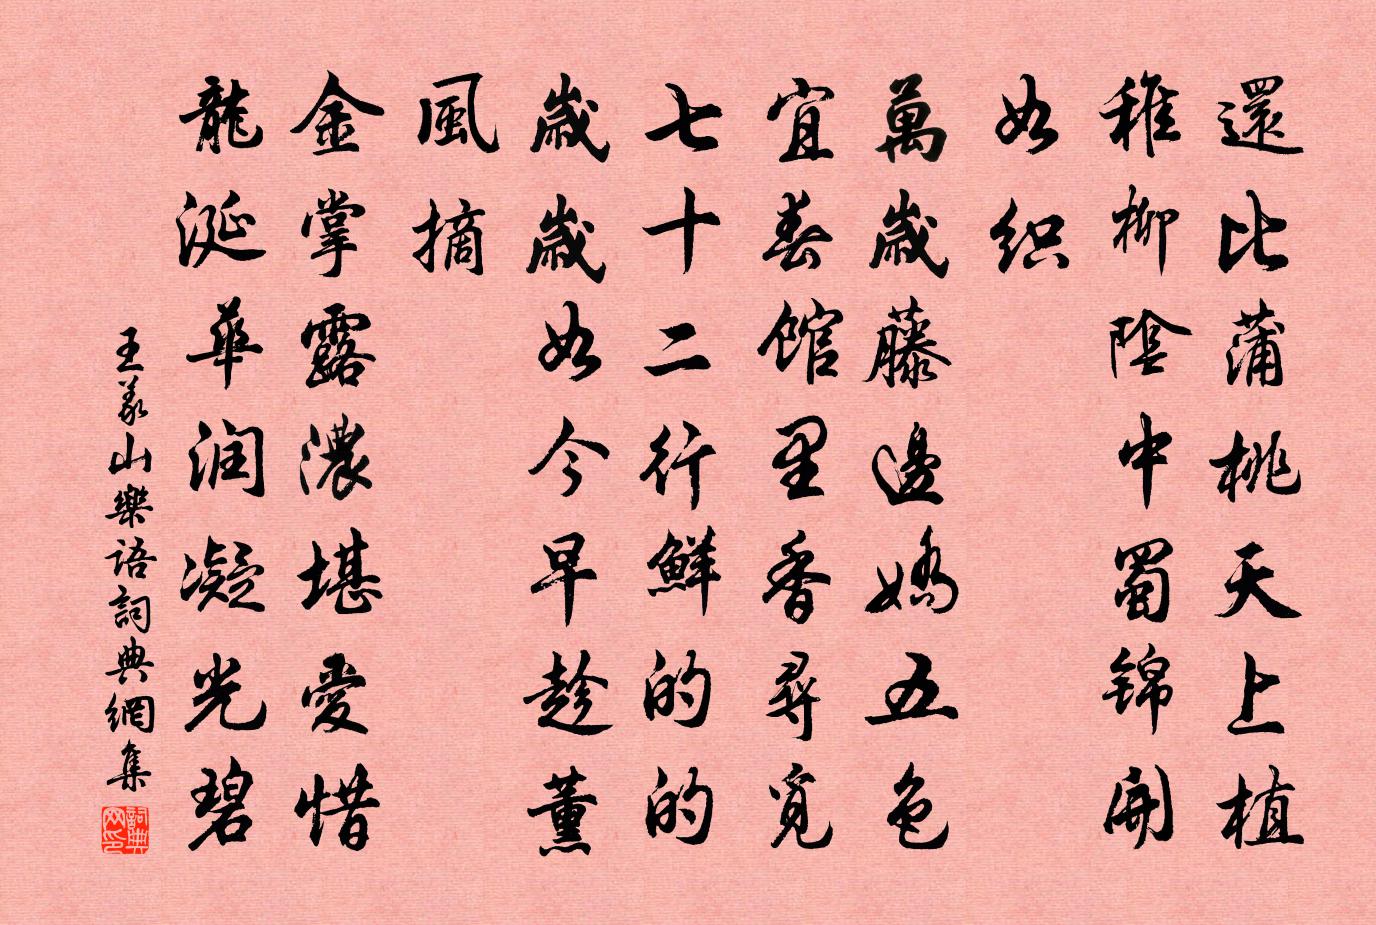 還比蒲桃天上植
稚柳陰中蜀锦開
如织
萬歲藤邊嬌五色
宜春馆里香尋覓
七十二行鮮的的
歲歲如今早趁薰
風摘
金掌露濃堪愛惜
龍涎華润凝光碧
王義山樂語詞典網集
詞典網印